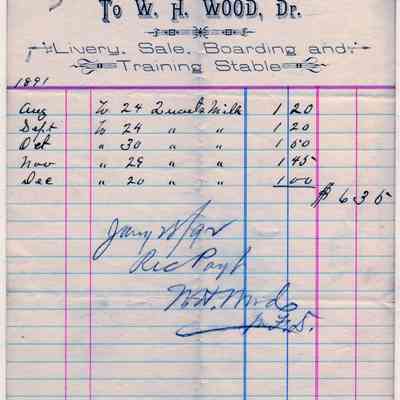 To W. H. WOOD, Dr.
Livery, Sale, Boarding and
Training Stable
1891
Aug To 24 Quarts Milk 1 20
Sept To 24 " " 1 20
Oct " 30 " " 1 50
Nov " 29 " " 1 45
Dec " 20 " " 1 00
$ 6 35
Jany /92
Rec Payt
W. H. Wood